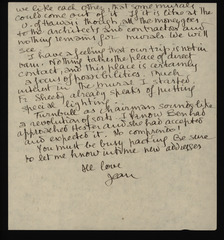 we like each other that some murals
could come out of it. It is like at the
U. of Hawaii though, all the money goes
to the architects and contractors and
nothing remains for murals. We will
see.
I have a feeling that our trip is not in
vain. Nothing takes the place of direct
contact, and this place is certainly
a ferment of possibilities. Much
interest in the mural I started,
Fr. Sheehy already speaks of putting
special lighting.
Turnbull as chairman sounds like
a revolution of sorts. I know Ben had
approached Hester and she had accepted
and expected it. No comprendo!
You must be busy packing. Be sure
to let me know in time new addresses
All love
Jean